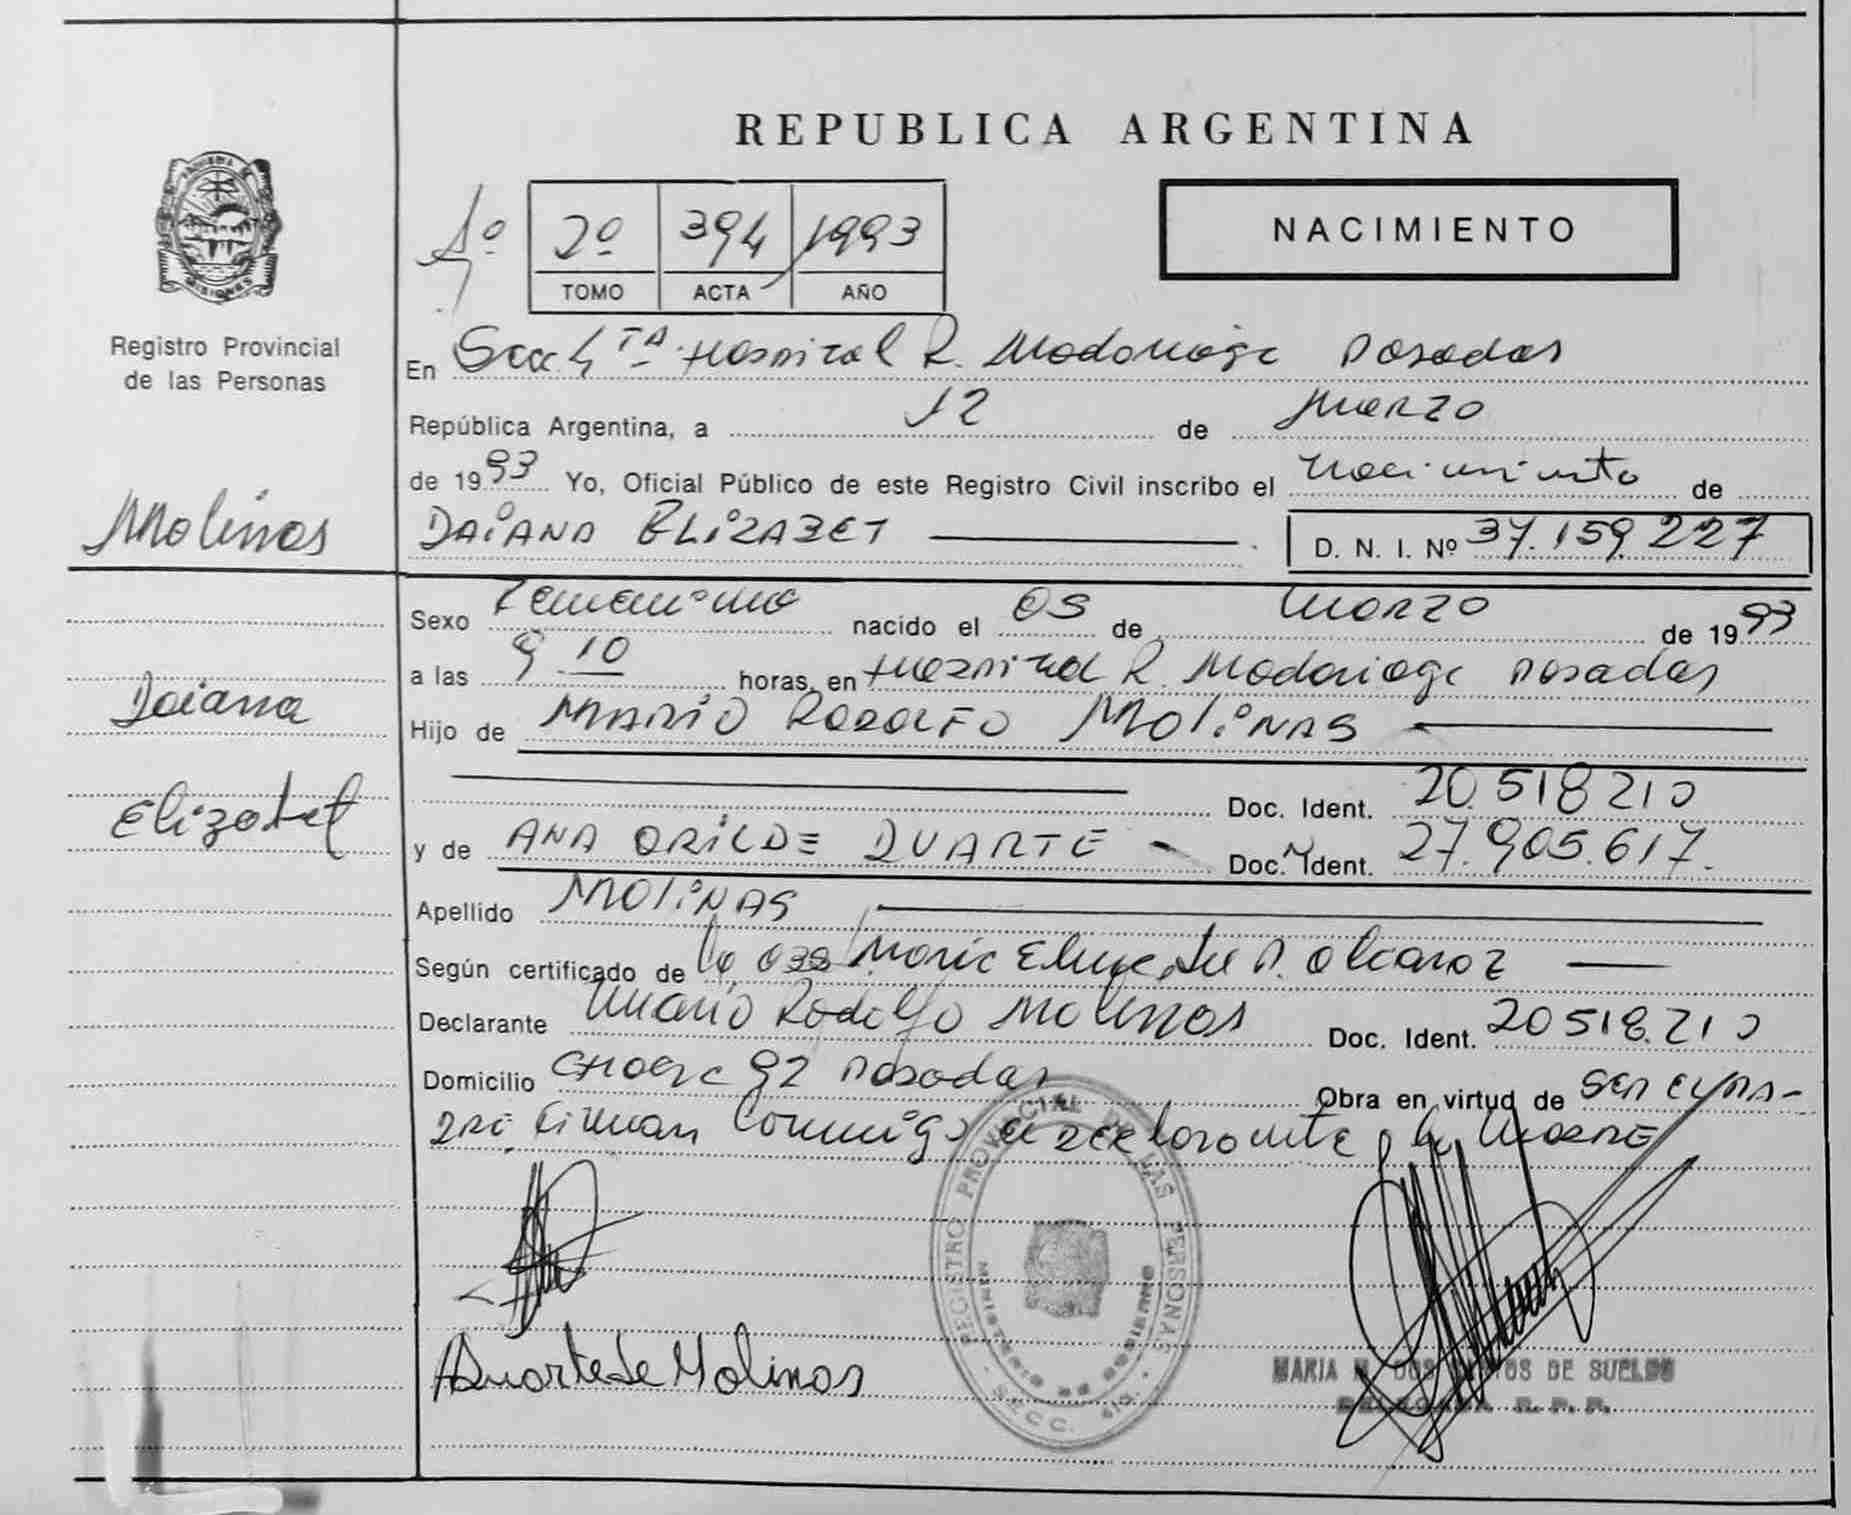 REPUBLICA ARGENTINA
NACIMIENTO
2º 394 1993
TOMO ACTA AÑO
PROVINCIA DE MISIONES
Registro Provincial
de las Personas
Molinas
Daiana
Elizabet
En Secc 4TA Hospital R. Madariaga Posadas
República Argentina, a 12 de Marzo
de 1993 Yo, Oficial Público de este Registro Civil inscribo el nacimiento de
DAIANA ELIZABET D. N. I. Nº 37.159.227
Sexo Femenino nacido el 05 de Marzo de 1993
a las 9 10 horas, en Hospital R. Madariaga Posadas
Hijo de MARIO RODOLFO MOLINAS
Doc. Ident. 20.518210
y de ANA ORILDE DUARTE Doc. Ident. 27.905.617.
Apellido MOLINAS
Según certificado de la Maria de Alcaraz
Declarante Mario Rodolfo Molinas Doc. Ident. 20518.210
Domicilio 92 Posadas Obra en virtud de
Firman Conmigo el declarante y la Madre
REGISTRO PROVINCIAL DE LAS PERSONAS
MINISTERIO DE GOBIERNO
SECC. 4ta.
A Duarte de Molinas
MARIA M. DOS SANTOS DE SUELDO
DELEGADA R. P. P.